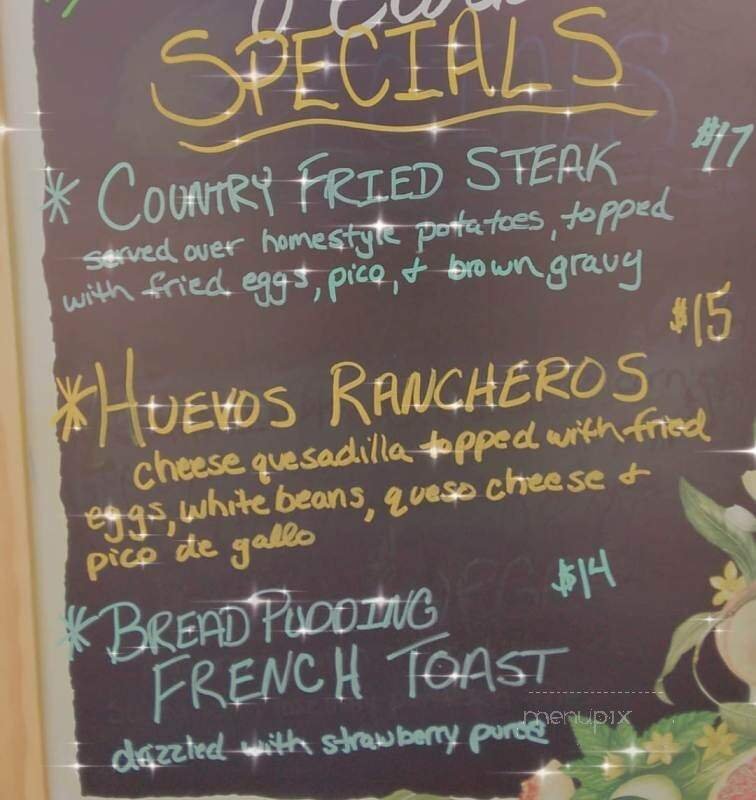 SPECIALS
* COUNTRY FRIED STEAK $17
served over homestyle potatoes, topped
with fried eggs, pico, & brown gravy
$15
* HUEVOS RANCHEROS
cheese quesadilla topped with fried
eggs, white beans, queso cheese &
pico de gallo
$14
* BREAD PUDDING
FRENCH TOAST
drizzled with strawberry puree
menupix